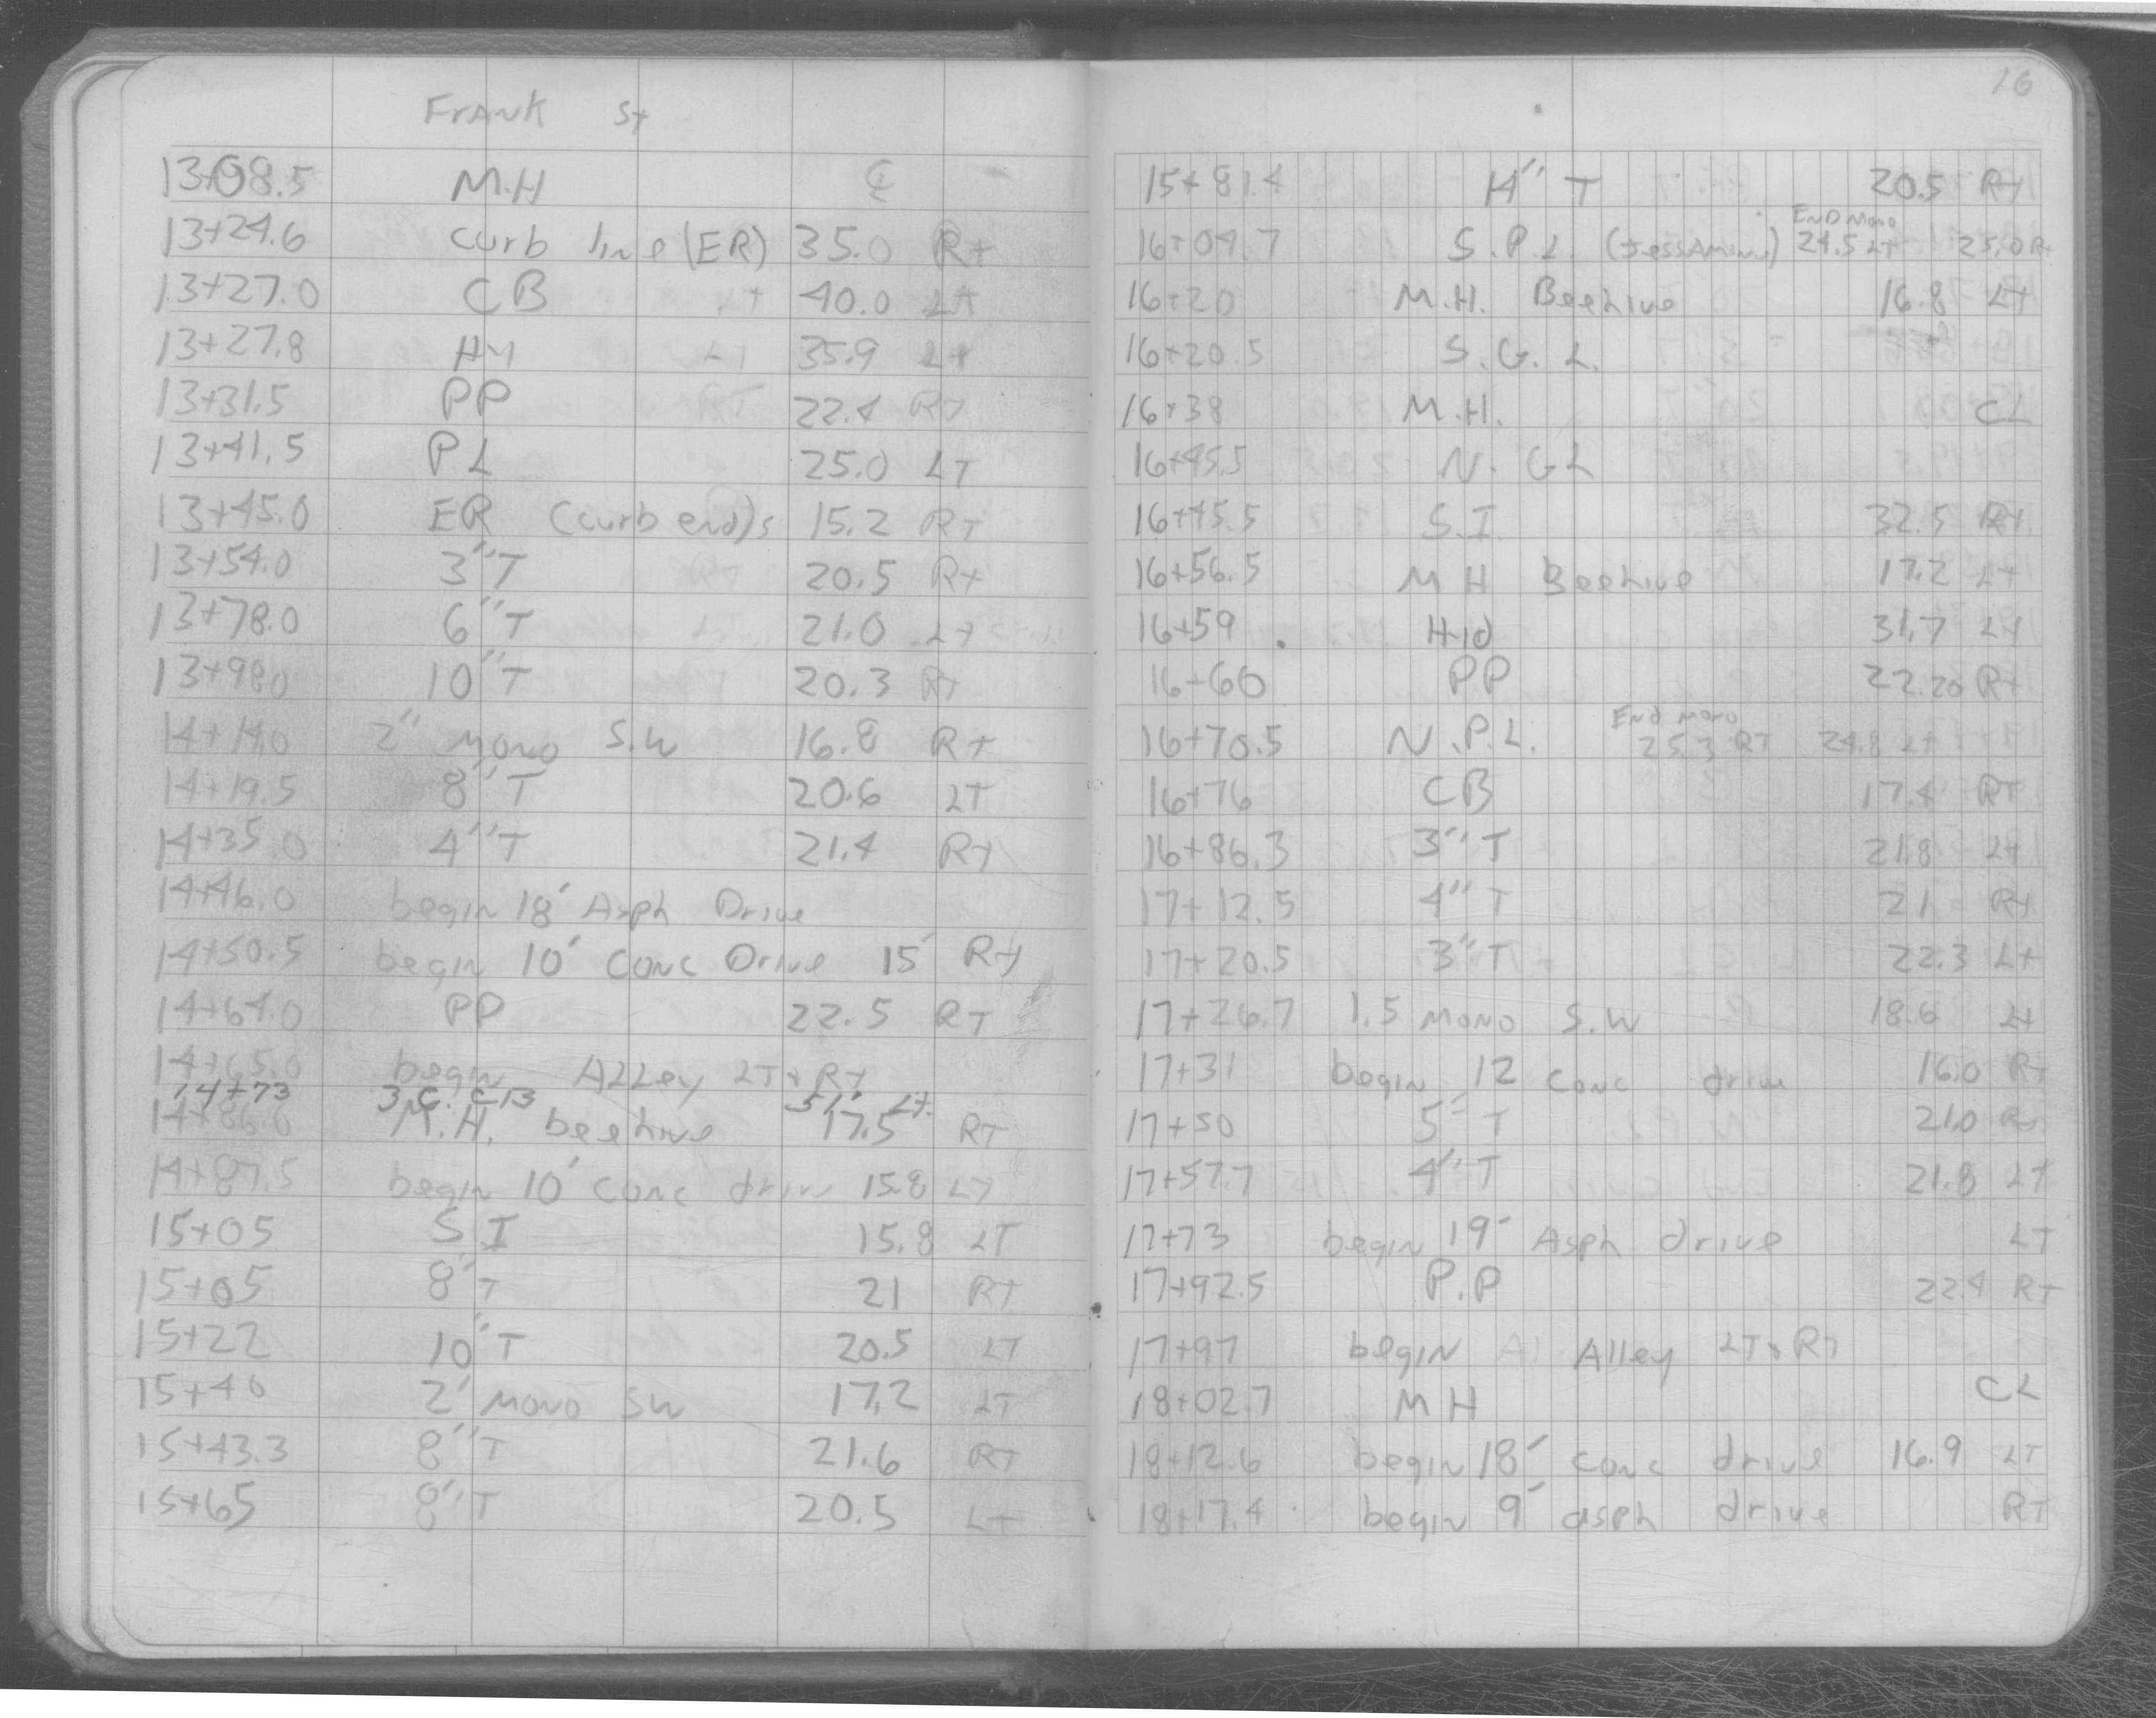 Frank St
13+08.5 M.H ℄
13+24.6 curb line (ER) 35.0 Rt
13+27.0 CB 40.0 Lt
13+27.8 Hy 35.9 Lt
13+31.5 PP 22.4 Rt
13+41.5 PL 25.0 LT
13+45.0 ER (curb end)s 15.2 Rt
13+54.0 3"T 20.5 Rt
13+78.0 6"T 21.0 Lt
13+98.0 10"T 20.3 Rt
14+14.0 2" mono S.W 16.8 Rt
14+19.5 8"T 20.6 LT
14+35.0 4"T 21.4 Rt
14+46.0 begin 18' Asph Drive
14+50.5 begin 10' conc Drive 15' Rt
14+64.0 PP 22.5 RT
14+65.0 begin ALLey LT + Rt
14+73 3 G. CB 51' Lt.
M.H. beehive 17.5 RT
14+87.5 begin 10' conc drive 15.8 LT
15+05 S I 15.8 LT
15+05 8"T 21 RT
15+22 10"T 20.5 LT
15+40 2' mono SW 17.2 LT
15+43.3 8"T 21.6 RT
15+65 8"T 20.5 LT
16
15+81.4 14" T 20.5 Rt
END Mono
16+04.7 S.P.L. (Jessamine) 24.5 Lt 25.0 Rt
16+20 M.H. Beehive 16.8 Lt
16+20.5 S.G.L.
16+38 M.H. CL
16+45.5 N. GL
16+45.5 S.I. 32.5 Rt
16+56.5 M H Beehive 17.2 Lt
16+59 Hyd 31.7 Lt
16+60 PP 22.20 Rt
End mono
16+70.5 N.P.L. 25.3 RT 24.8 Lt
16+76 CB 17.4 RT
16+86.3 3"T 21.8 Lt
17+12.5 4"T 21 Rt
17+20.5 3"T 22.3 Lt
17+26.7 1.5 mono S.W 18.6 Lt
17+31 begin 12 conc drive 16.0 Rt
17+50 5" T 21.0 Rt
17+57.7 4"T 21.8 LT
17+73 begin 19' Asph drive LT
17+92.5 P.P 22.4 RT
17+97 begin Alley LT & RT
18+02.7 MH CL
18+12.6 begin 18' conc drive 16.9 LT
18+17.4 begin 9' asph drive RT